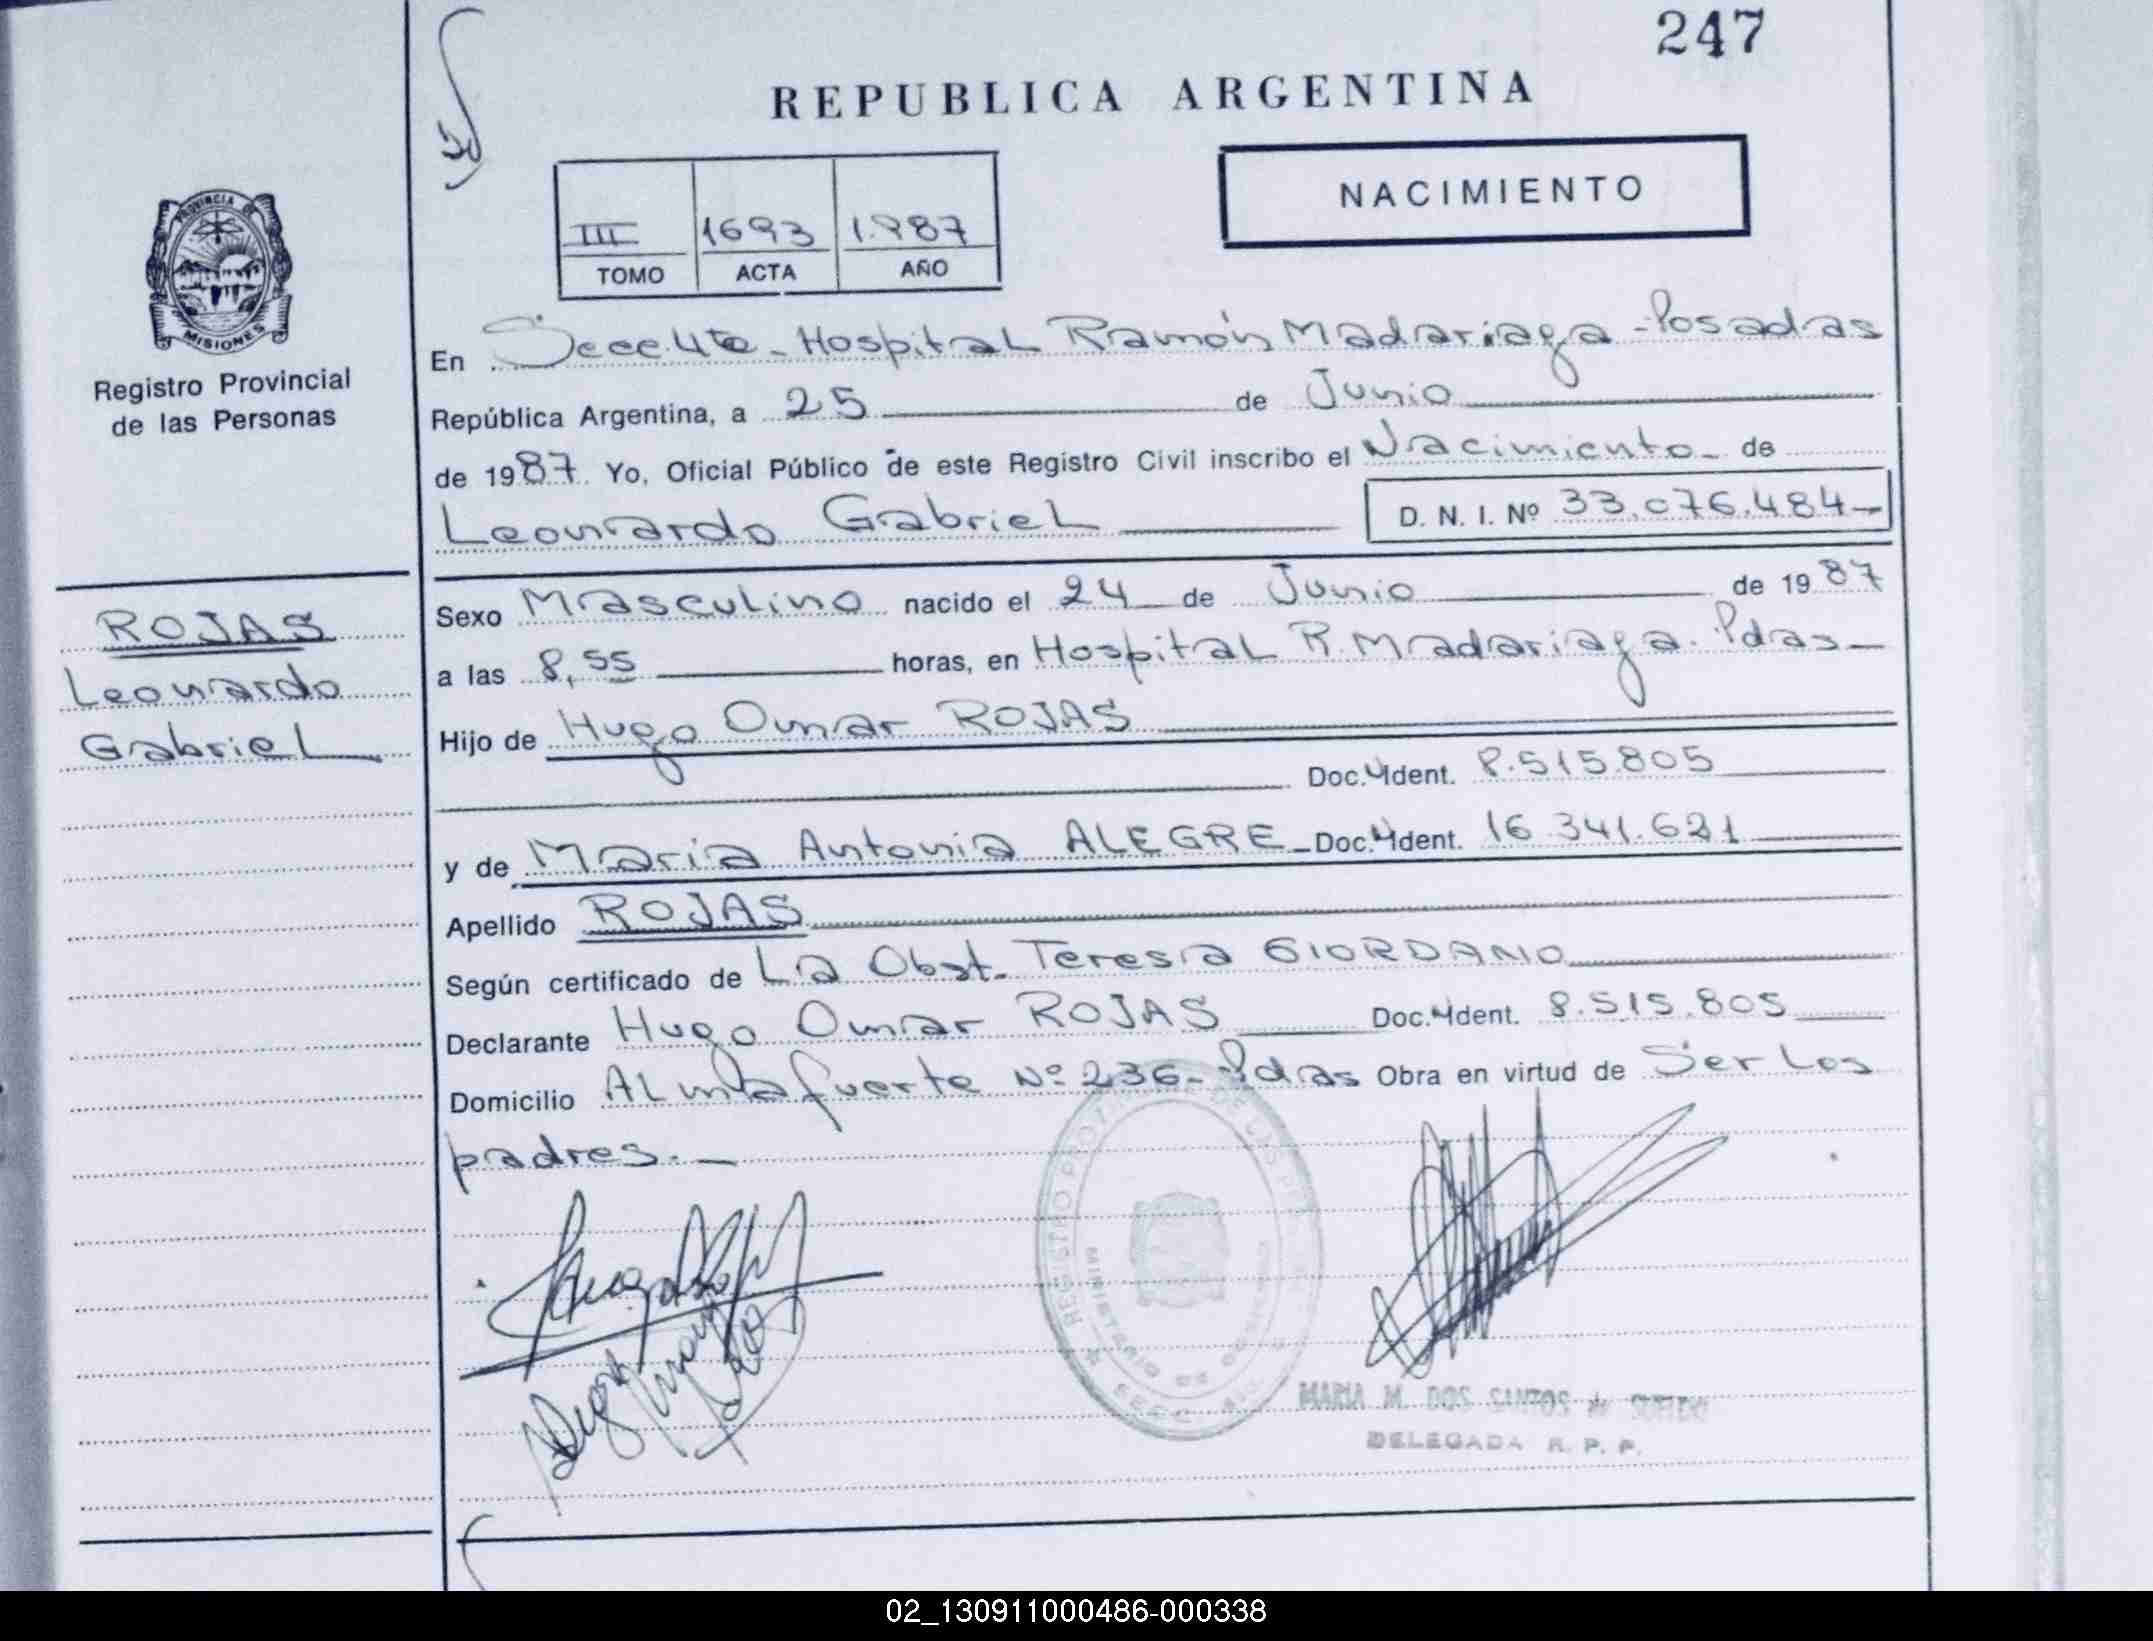 247
REPUBLICA ARGENTINA
NACIMIENTO
III 1693 1.987
TOMO ACTA AÑO
PROVINCIA DE
MISIONES
Registro Provincial
de las Personas
En Secc. 4ta - Hospital Ramón Madariaga - Posadas
República Argentina, a 25 de Junio
de 1987. Yo, Oficial Público de este Registro Civil inscribo el Nacimiento - de
Leonardo Gabriel D. N. I. Nº 33.076.484-
ROJAS
Leonardo
Gabriel
Sexo Masculino nacido el 24 de Junio de 1987
a las 8,55 horas, en Hospital R. Madariaga. Pdas -
Hijo de Hugo Omar ROJAS
Doc. Ident. 8.515.805
y de Maria Antonia ALEGRE - Doc. Ident. 16.341.621
Apellido ROJAS
Según certificado de La Obst. Teresa GIORDANO
Declarante Hugo Omar ROJAS Doc. Ident. 8.515.805
Domicilio ALmafuerte Nº 236 - Pdas Obra en virtud de Ser Los
padres. -
REGISTRO PROVINCIAL DE LAS
MINISTERIO DE GOBIERNO
MARIA M. DOS SANTOS de
DELEGADA R. P. P.
02_130911000486-000338